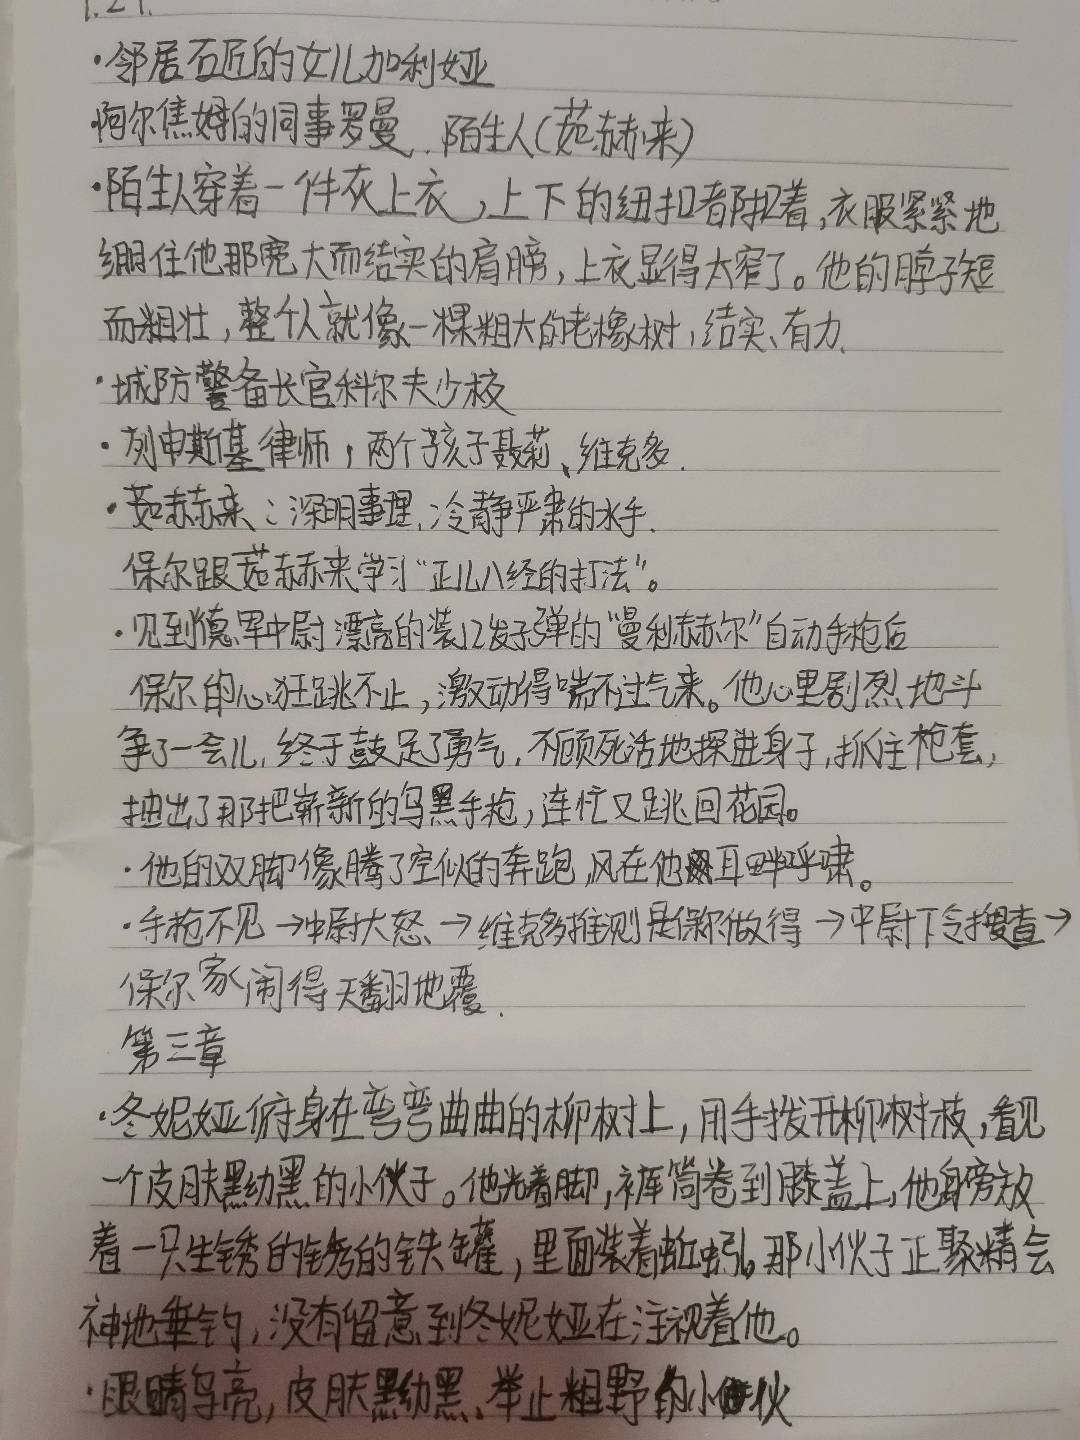 1.21.
·邻居石匠的女儿加利娅
·阿尔焦姆的同事罗曼、陌生人(茹赫来)
·陌生人穿着一件灰上衣,上下的纽扣都扣着,衣服紧紧地
绷住他那宽大而结实的肩膀,上衣显得太窄了。他的脖子短
而粗壮,整个人就像一棵粗大的老橡树,结实、有力.
·城防警备长官科尔夫少校
·列申斯基律师,两个孩子聂莉、维克多.
·茹赫来:深明事理、冷静严肃的水手.
保尔跟茹赫来学习“正儿八经的打法”。
·见到德军中尉漂亮的装12发子弹的“曼利赫尔”自动手枪后
保尔的心狂跳不止,激动得喘不过气来。他心里剧烈地斗
争了一会儿,终于鼓足了勇气,不顾死活地探进身子,抓住枪套,
抽出了那把崭新的乌黑手枪,连忙又跳回花园。
·他的双脚像腾了空似的奔跑,风在他耳畔呼啸。
·手枪不见→中尉大怒→维克多推测是保尔做得→中尉下令搜查→
保尔家闹得天翻地覆.
第三章
·冬妮娅俯身在弯弯曲曲的柳树上,用手拨开柳树枝,看见
一个皮肤黝黑的小伙子。他光着脚,裤筒卷到膝盖上,他身旁放
着一只生锈的铁罐,里面装着蚯蚓。那小伙子正聚精会
神地垂钓,没有留意到冬妮娅在注视着他。
·眼睛乌亮,皮肤黝黑、举止粗野的小伙